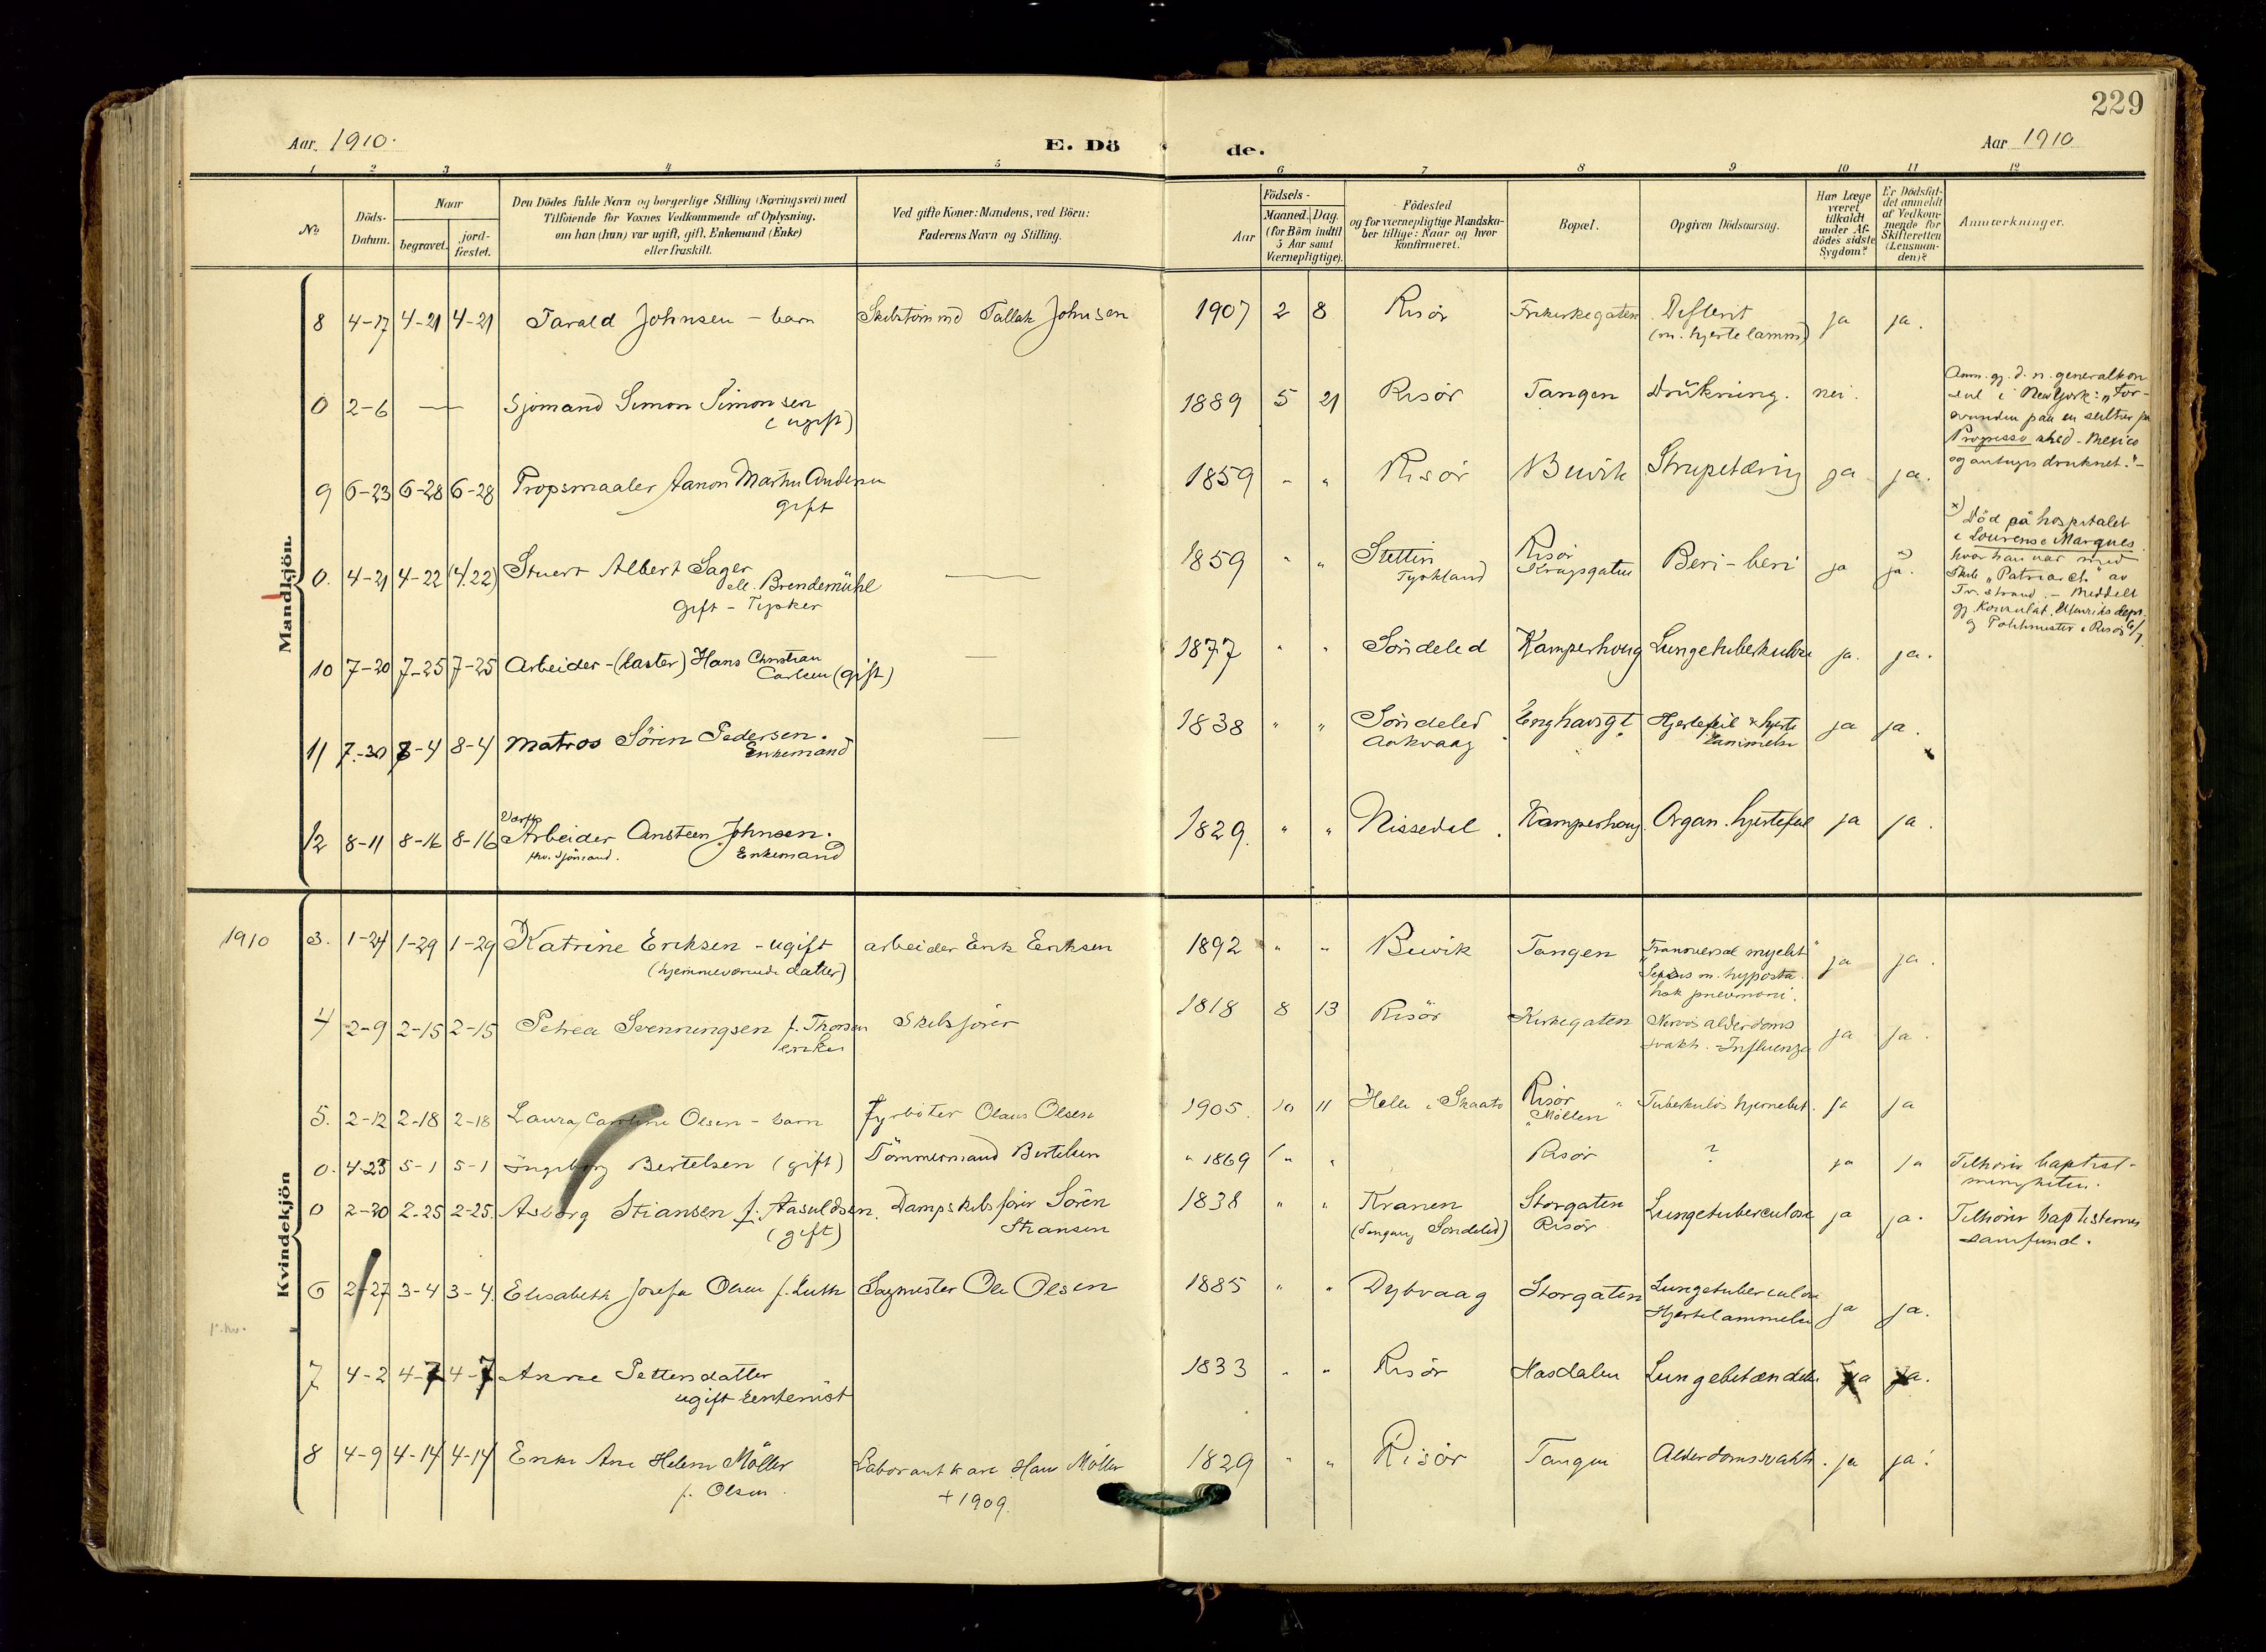 229
Aar. 1910.
E. Dö de.
Aar 1910
1 2 3 4 5 6 7 8 9 10 11 12
No.
Döds-Datum.
Naar
begravet. jord-fæstet.
Den Dödes fulde Navn og borgerlige Stilling (Næringsvei) med
Tilföiende for Voxnes Vedkommende af Oplysning,
om han (hun) var ugift, gift, Enkemand (Enke)
eller fraskilt.
Ved gifte Koner: Mandens, ved Börn:
Faderens Navn og Stilling.
Födsels-
Aar Maaned. Dag.
(for Börn indtil
5 Aar samt
Værnepligtige).
Födested
og for værnepligtige Mandska-
ber tillige: Naar og hvor
konfirmeret.
Bopæl.
Opgiven Dödsaarsag.
Har Læge
været
tilkaldt
under Af-
dödes sidste
Sygdom?
Er Dödsfal-
det anmeldt
af Vedkom-
mende for
Skifteretten
(Lensman-
den)?
Anmærkninger.
Mandkjön.
8 4-17 4-21 4-21 Tarald Johnsen - barn Skibstømmd Tallak Johnsen 1907 2 8 Risör Frikirkegaten Difterit ja ja.
(m. hjertelamm)
0 2-6 — Sjömand Simon Simonsen 1889 5 21 Risör Tangen Drukning. nei.
(ugift)
Anm. gj. d. n. generalkon
sul i New York: "For-
svunden paa en seiltur
Progresso red - Mexico
og antages druknet."-
9 6-23 6-28 6-28 Propsmaaler Aanon Martin Andersen 1859 " " Risör Buvik Strupetæring ja ja.
gift
0. 4-21 4-22 (4.22) Stuert Albert Sager 1859 " " Stettin Risör Beri-beri ja ja. x)
ell. Brendemühl Tyskland Kragsgaten
Gift - Tysker
x) Död på hospitalet
i Lourense Marques
hvor han var med
Skib "Patriarch" av
Tv.strand. - Meddelt
gj. Konsulat. Utenriksdepr.
og Politimester i Risör
10 7-20 7-25 7-25 Arbeider - (laster) Hans Christian 1877 " " Söndeled Kamperhoug Lungetuberkulose ja. ja.
Carlsen (gift)
11 7-30 8-4 8-4 Matros Sören Pedersen. 1838 " " Söndeled Enghavsgt. Hjertefeil & hjerte ja ja.
Enkemand Aakvaag lammelse
12 8-11 8-16 8-16 Værfts Arbeider Ansteen Johnsen. 1829. " " Nissedal. Kamperhoug Organ. hjertefeil ja ja.
fhv. Sjömand. Enkemand
Kvindekjön
1910 3. 1-24 1-29 1-29 Katrine Eriksen - ugift arbeider Erik Eriksen 1892 " " Buvik Tangen Transversal myelit ja ja.
(hjemmeværende datter) Sepsis m. hyposta
tisk pneumoni.
4 2-9 2-15 2-15 Petrea Svenningsen f. Thorsen Skibsförer 1818 8 13 Risör Kirkegaten Nervös alderdoms ja ja.
enke svakh. - Influenza
5. 2-12 2-18 2-18 Laura Caroline Olsen - barn Fyrböter Olaus Olsen 1905. 10 11 Helle i Skaatö Risör Tuberkulös hjernebet. ja ja
"Möllen
0. 4-23 5-1 5-1 Ingeborg Bertelsen (gift) Tömmermand Bertelsen " 1869 " " Risör ? ja ja Tilhörer baptist-
menigheten.
0 2-20 2-25 2-25. Asborg Stiansen f. Aasuldsen. Dampskibsförer Sören 1838 " " Kranen Storgaten Lungetuberculose ja ja. Tilhörer baptisternes
(gift) Stiansen (Songaug Söndeled) Risör samfund.
6 2-27 3-4 3-4. Elisabeth Josefa Olsen f. Luth Sagmester Ole Olsen 1885 " " Dybvaag Storgaten Lungetuberculose ja ja.
Hjertelammelse
7 4-2 4-7 4-7 Anne Pettersdatter 1833 " " Risör Hasdalen Lungebetændelse ja ja.
ugift
8 4-9 4-14 4-14 Enke Ane Helene Möller Laborantkarl Hans Möller 1829 " " Risör Tangen Alderdomssvakh. ja ja.
f. Olsen. + 1909.